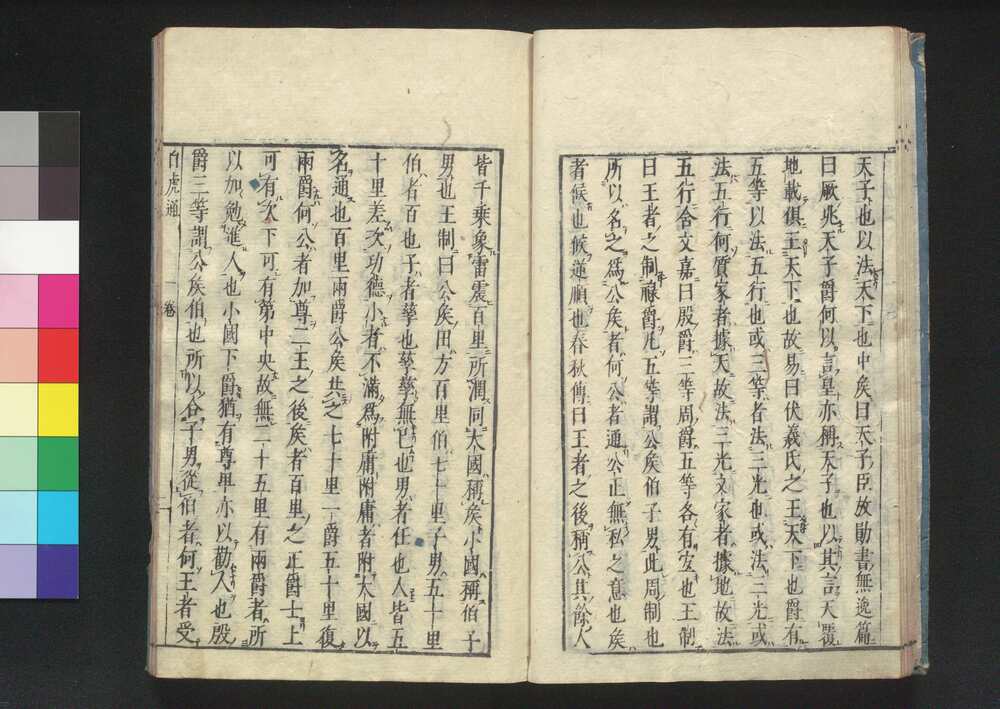 天子也以法天下也中矦曰天子臣放勛書無逸篇
曰厥兆天子爵何以言皇亦稱天子也以其言天覆
地載俱王天下也故易曰伏羲氏之王天下也爵有
五等以法五行也或三等者法三光也或法三光或
法五行何質家者據天故法三光文家者據地故法
五行含文嘉曰殷爵三等周爵五等各有宜也王制
曰王者之制祿爵凡五等謂公矦伯子男此周制也
所以名之爲公矦者何公者通公正無私之意也矦
者候也候逆順也春秋傳曰王者之後稱公其餘人
皆千乘象雷震百里所潤同大國稱矦小國稱伯子
男也王制曰公矦田方百里伯七十里子男五十里
伯者百也子者孳也孳孳無已也男者任也人皆五
十里差次功德小者不滿爲附庸附庸者附大國以
名通也百里兩爵公矦共之七十里一爵五十里復
兩爵何公者加尊二王之後矦者百里之正爵士上
可有次下可有第中央故無二十五里有兩爵者所
以加勉進人也小國下爵猶有尊卑亦以勸人也殷
爵三等謂公矦伯也所以合子男從伯者何王者受
白虎通 一卷 二